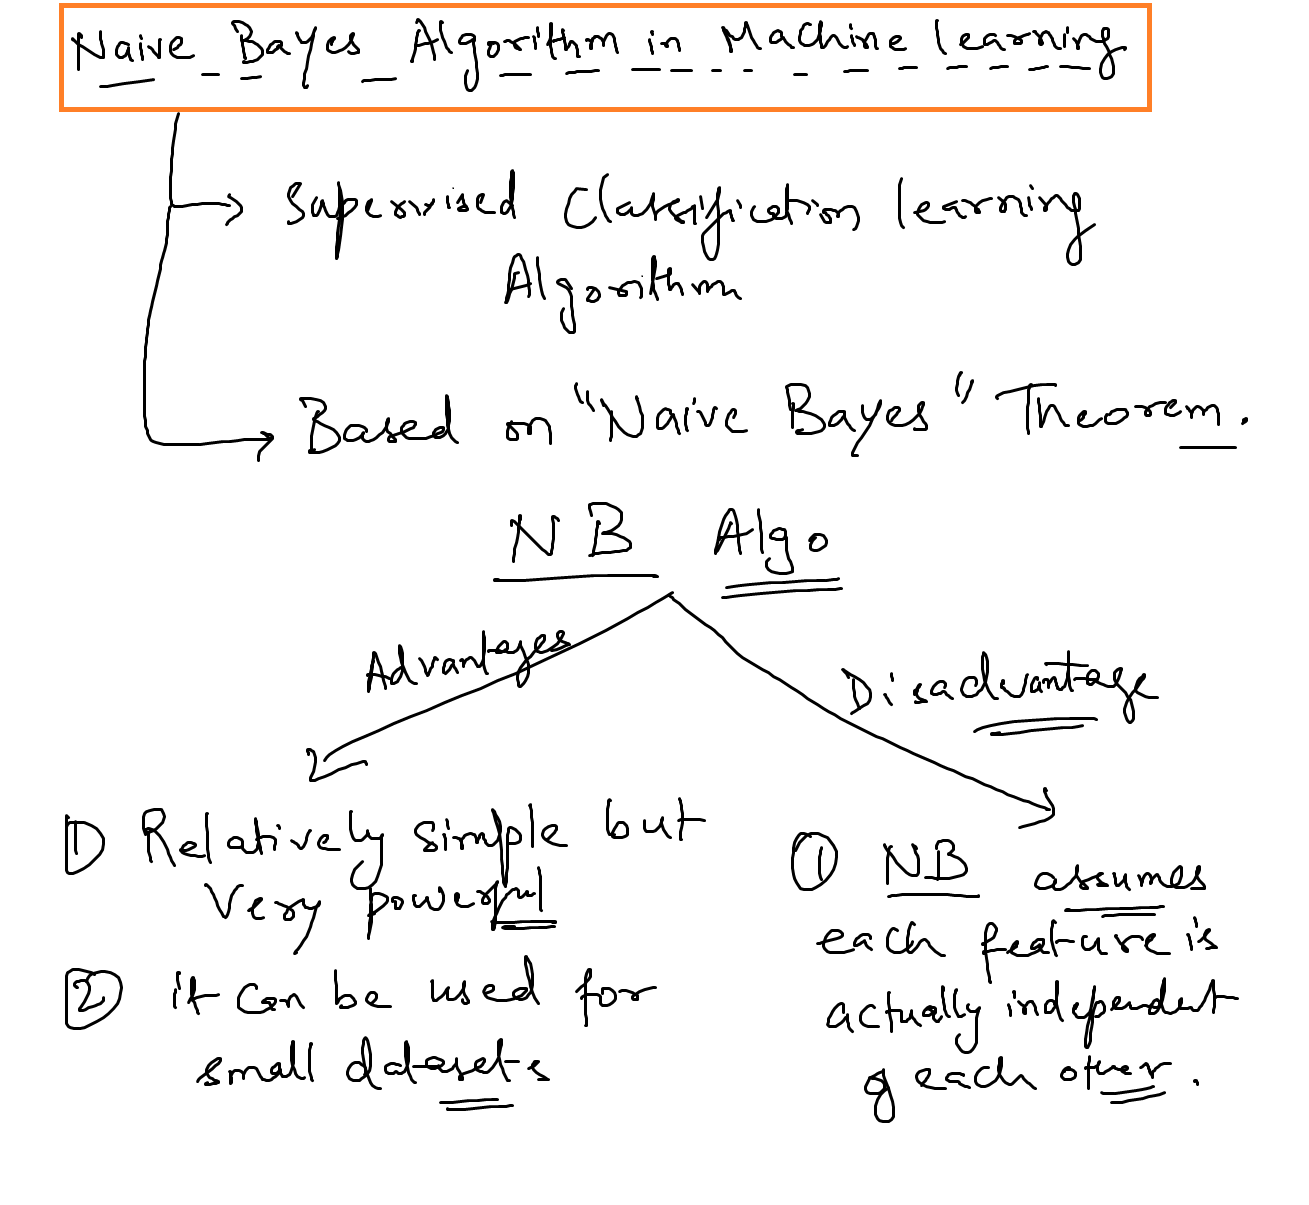 Naive Bayes Algorithm in Machine learning
Supervised Classification learning
Algorithm
Based on "Naive Bayes" Theorem.
NB Algo
Advantages
Disadvantage
① Relatively simple but
very powerful
② it can be used for
small datasets
① NB assumes
each feature is
actually independent
of each other.